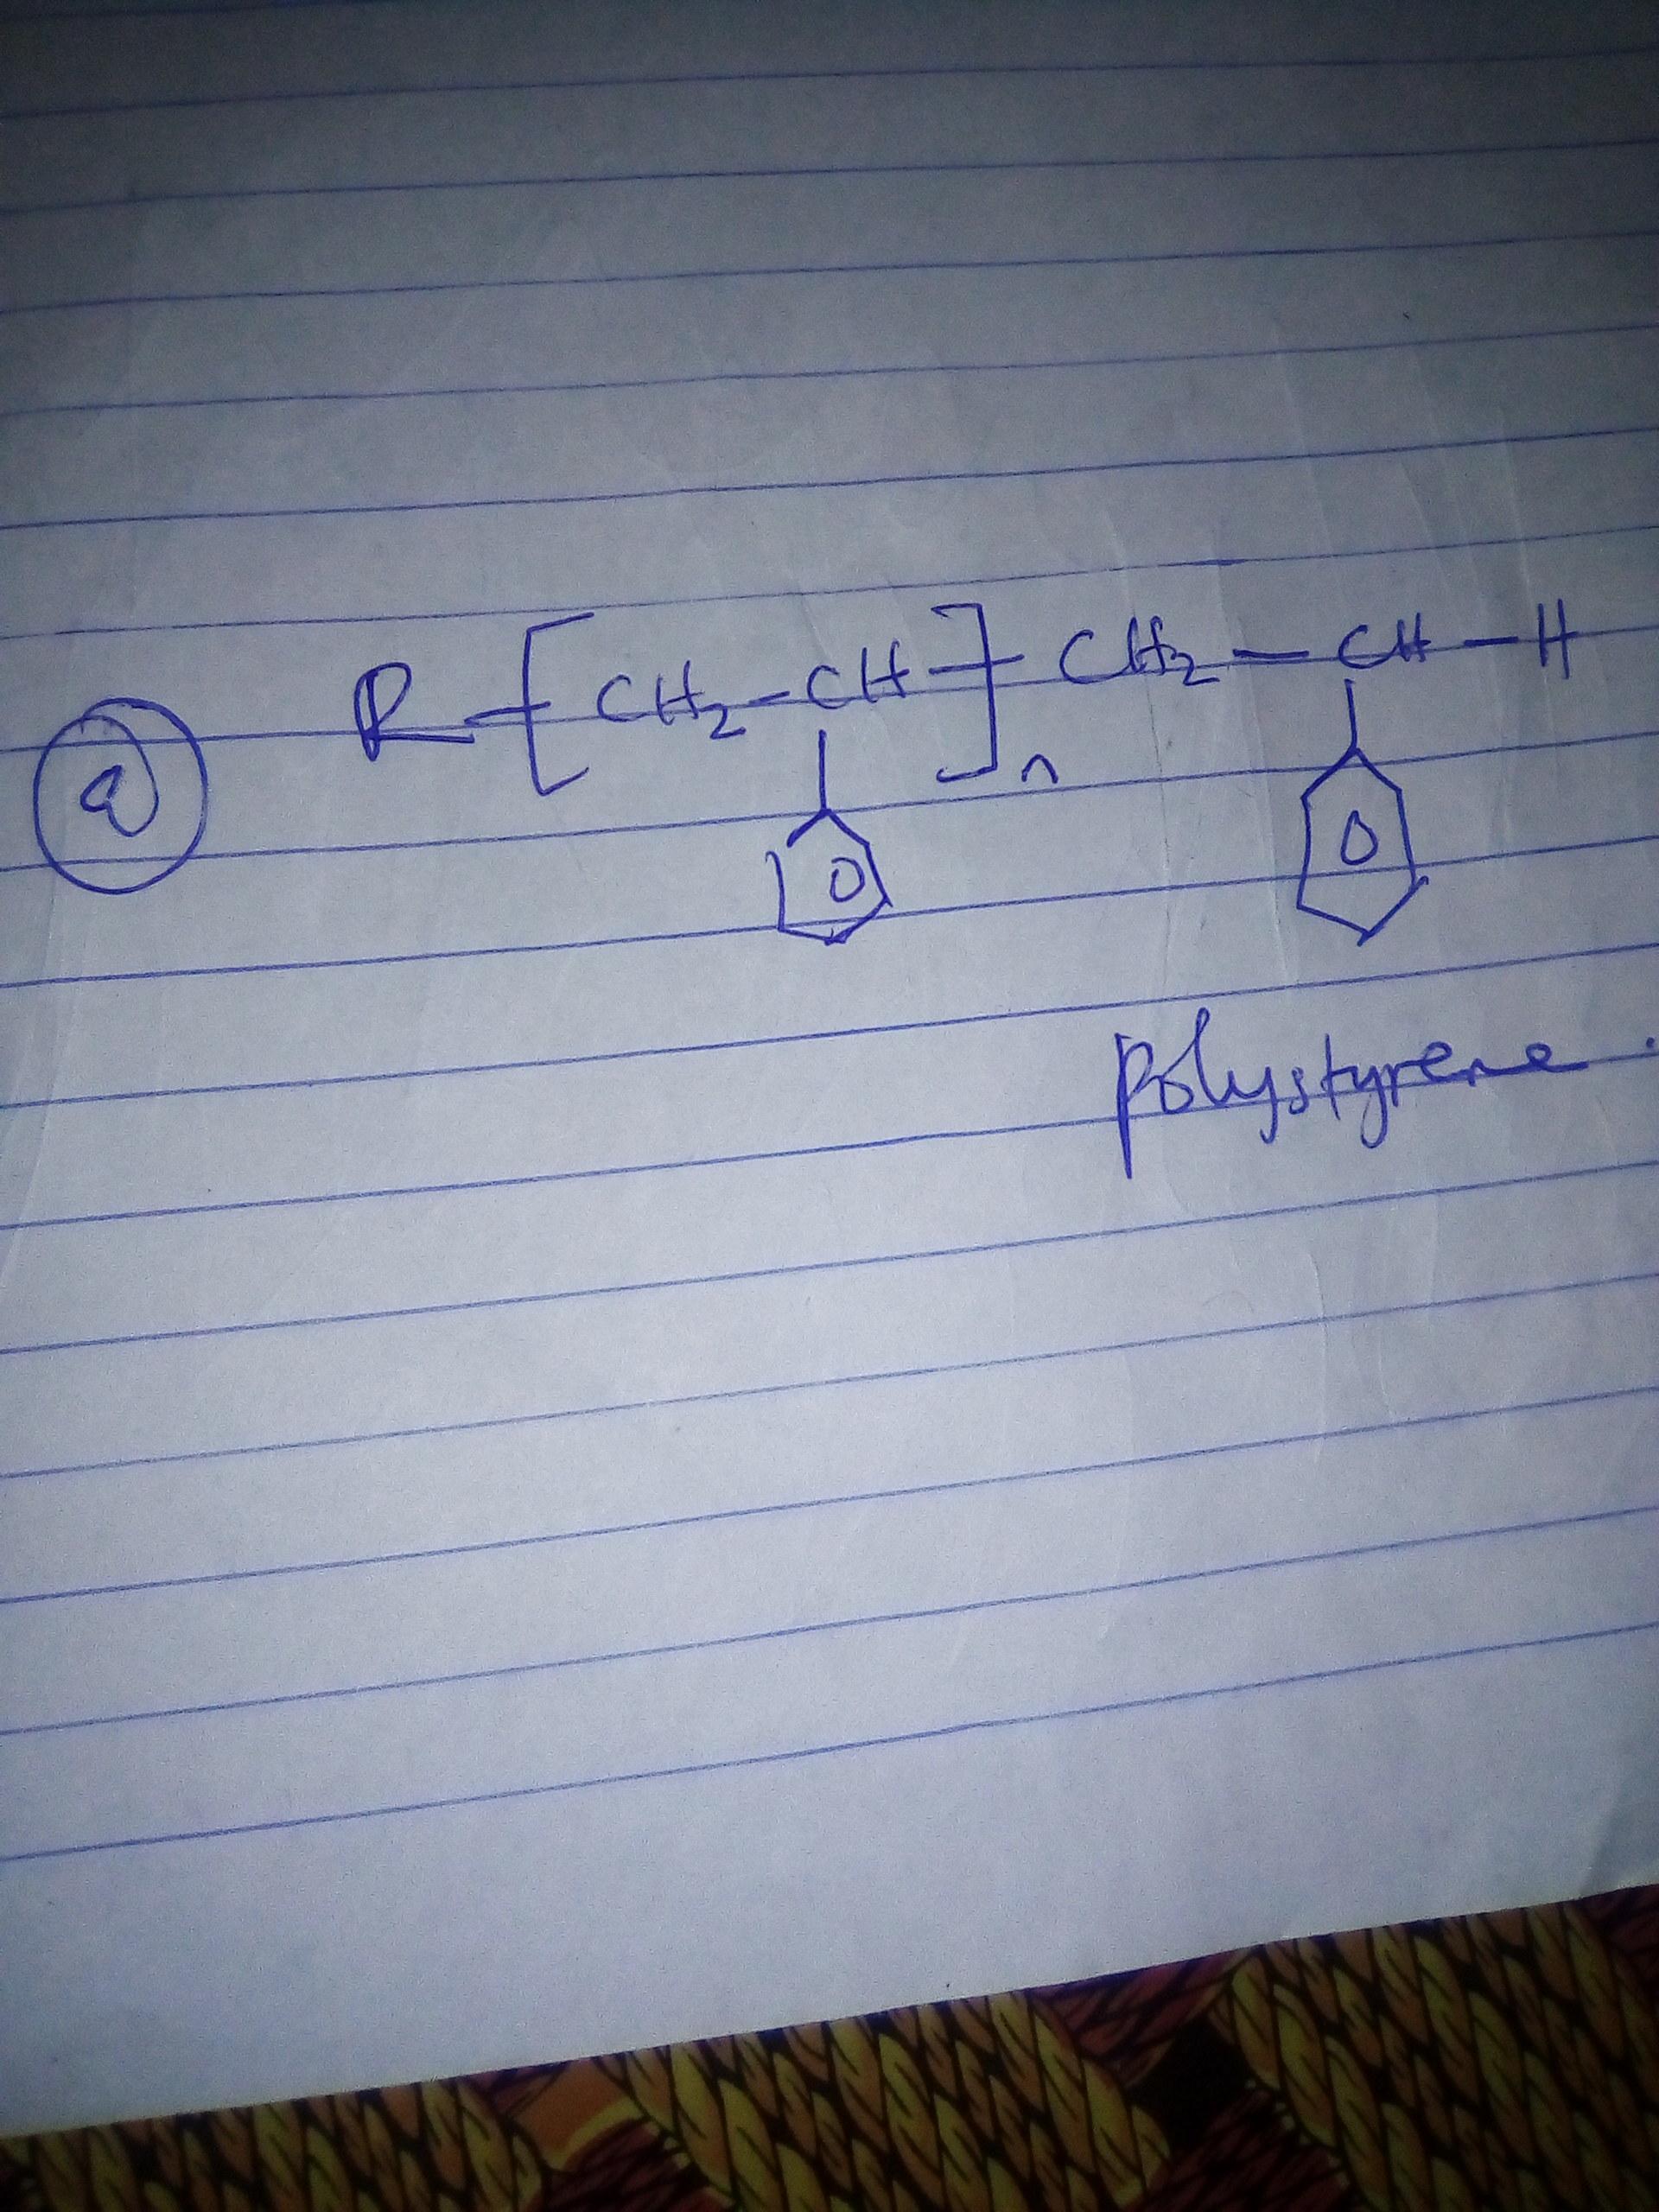 a R-[CH2-CH-]n CH2-CH-H
polystyrene.